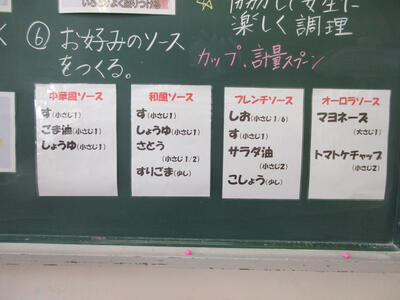 いろどりよく盛りつける
協力して安全に
楽しく調理
く
⑥ お好みのソース
をつくる。
カップ、計量スプーン
中華風ソース
す(小さじ1)
ごま油(小さじ1)
しょうゆ(小さじ1)
和風ソース
す(小さじ1)
しょうゆ(小さじ1)
さとう
(小さじ1/2)
すりごま(少し)
フレンチソース
しお(小さじ1/6)
す(小さじ1)
サラダ油
(小さじ2)
こしょう(少し)
オーロラソース
マヨネーズ
(大さじ1)
トマトケチャップ
(小さじ2)